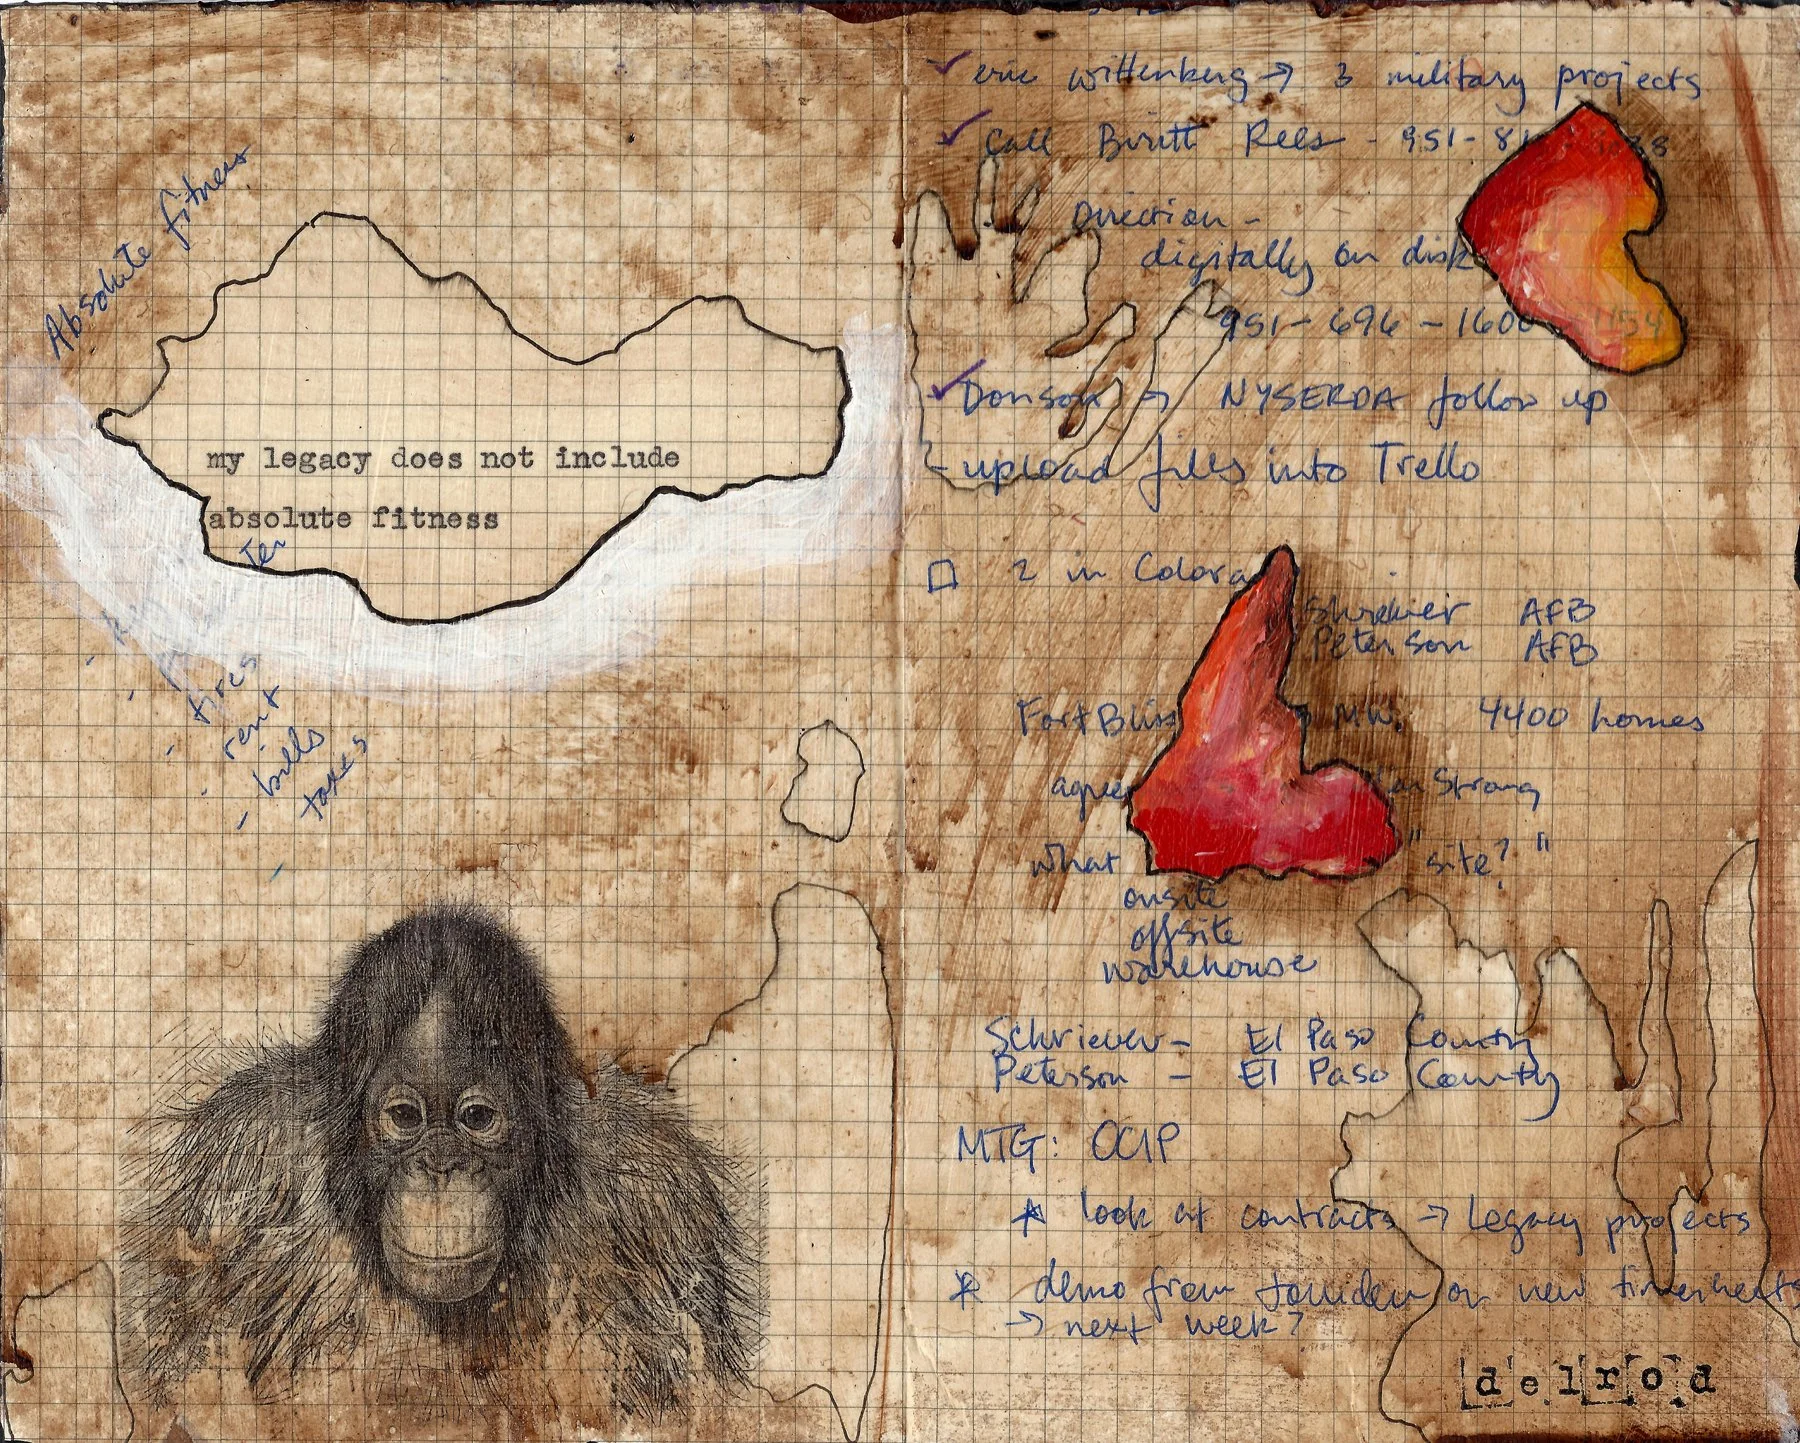 Absolute fitness
my legacy does not include
absolute fitness
Ter
- tires
- rent
- bills
taxes
✓ eric wittenberg → 3 military projects
✓ Call Britt Rees - 951-8
Direction -
digitally on disk
951-696-1600
✓ Donson → NYSERDA follow up
- upload files into Trello
□ 2 in Colora
Shrevier AFB
Peterson AFB
Fort Bliss MW. 4400 homes
agree Strong
what "site?"
onsite
offsite
warehouse
Schriever - El Paso County
Peterson - El Paso County
MTG: OCIP
* look at contracts → Legacy projects
* demo from on new timesheets
→ next week?
delrod